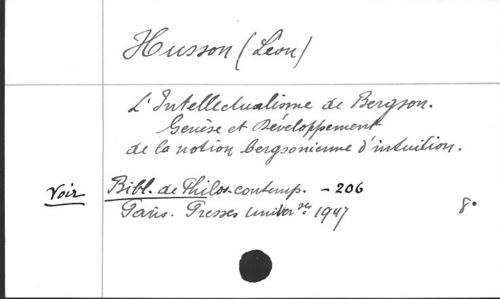 Husson (Léon)
L'Intellectualisme de Bergson.
Genèse et Développement
de la notion bergsonienne d'intuition.
Voir Bibl. de Philos. contemp. - 206
Paris. Presses univer.res 1947 8°